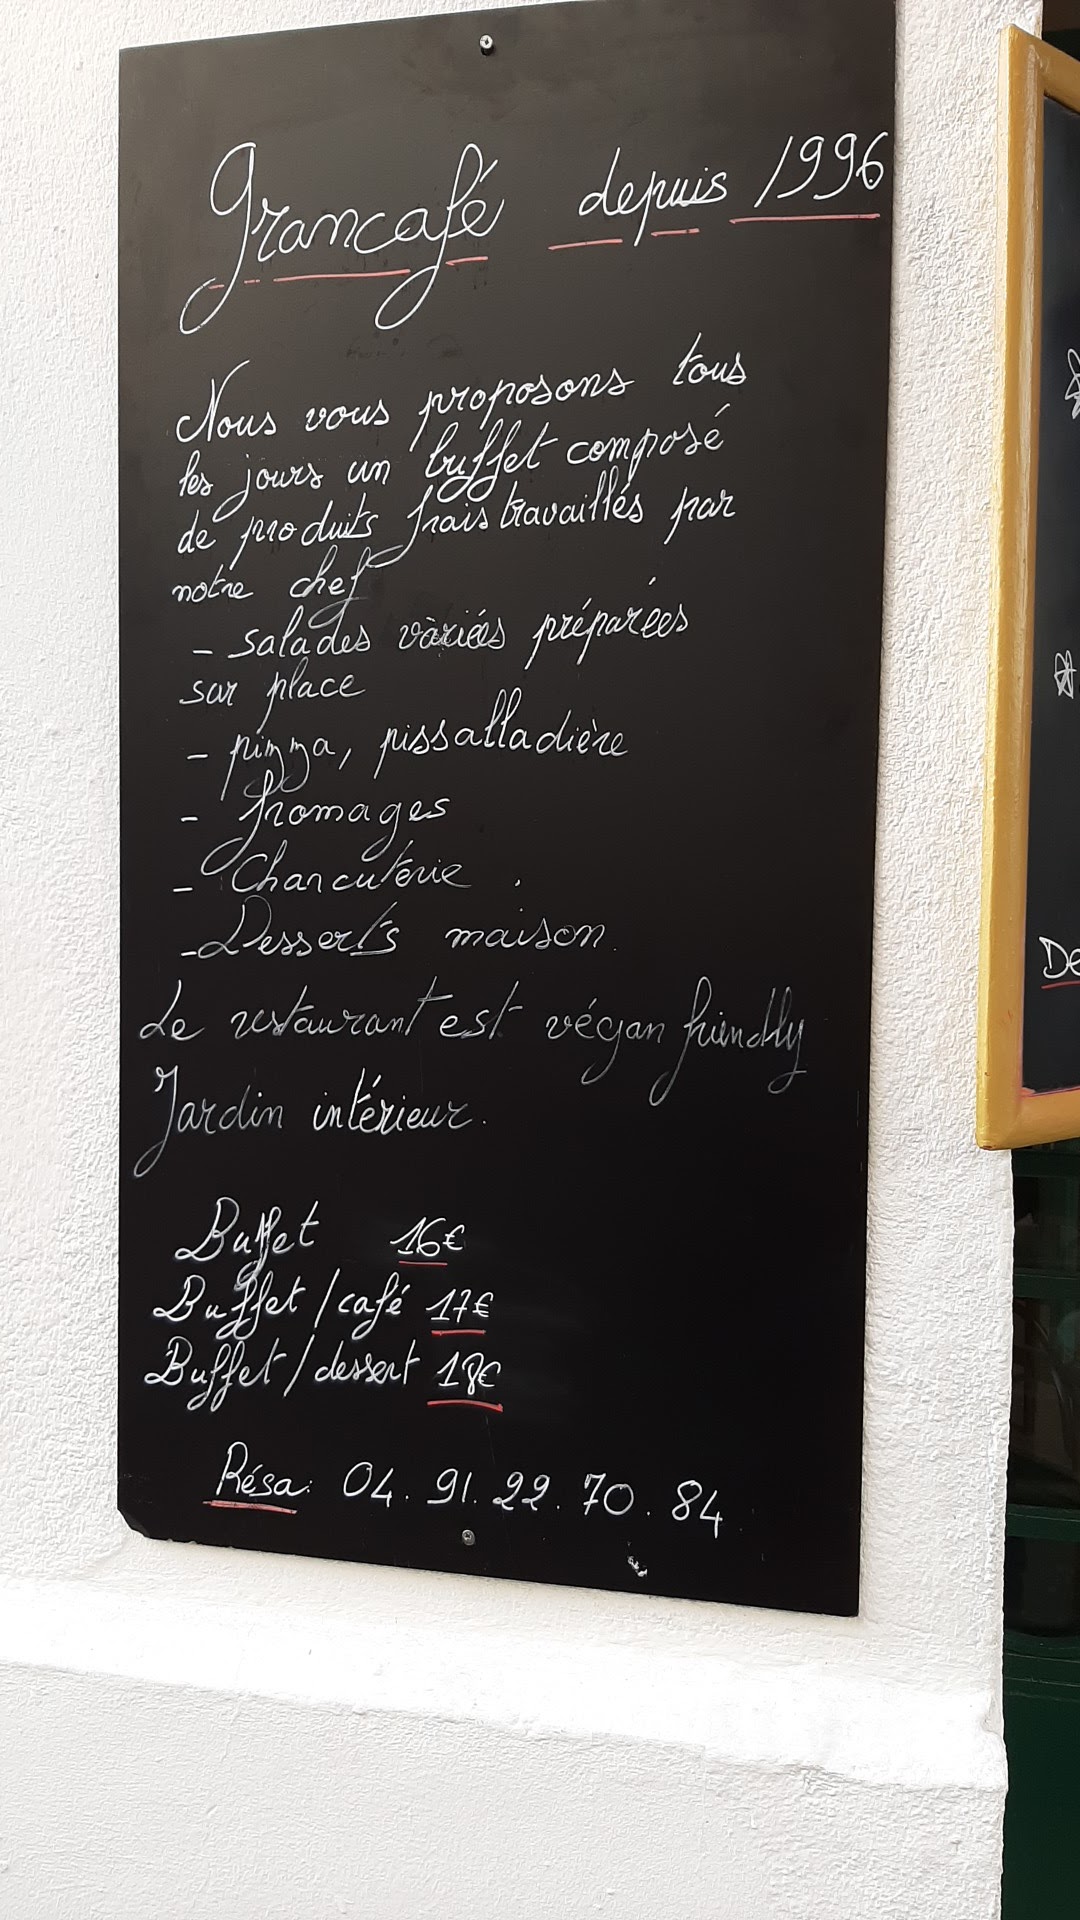 Grancafé depuis 1996
Nous vous proposons tous
les jours un buffet composé
de produits frais travaillés par
notre chef
- salades variées préparées
sur place
- pizza, pissalladière
- fromages
- Charcuterie.
- Desserts maison.
Le restaurant est végan friendly
Jardin intérieur.
Buffet 16€
Buffet/café 17€
Buffet/dessert 18€
Résa: 04.91.22.70.84
De